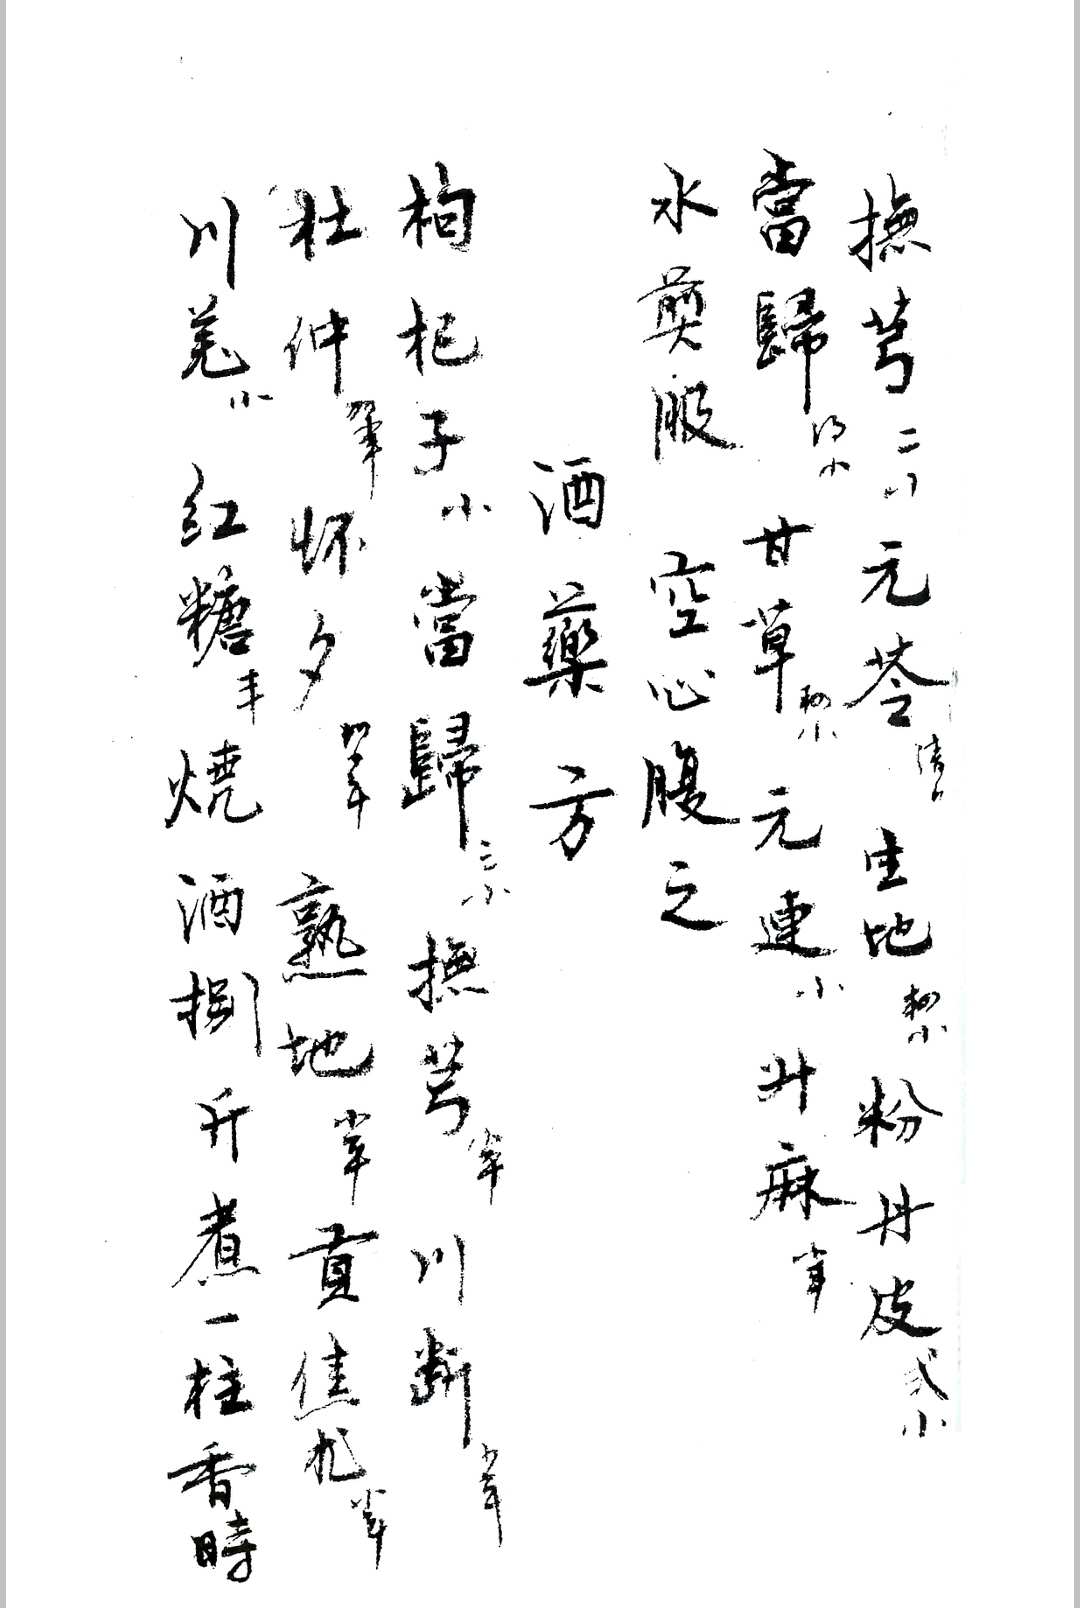 撫芎二小元苓生地粉丹皮弍小
當歸甘草元連小升麻
水煎服 空心腹之
酒藥方
枸杞子小當歸三小撫芎川断
杜仲怀夕熟地貢焦朮
川羌小红糖燒酒捌斤煮一柱香時